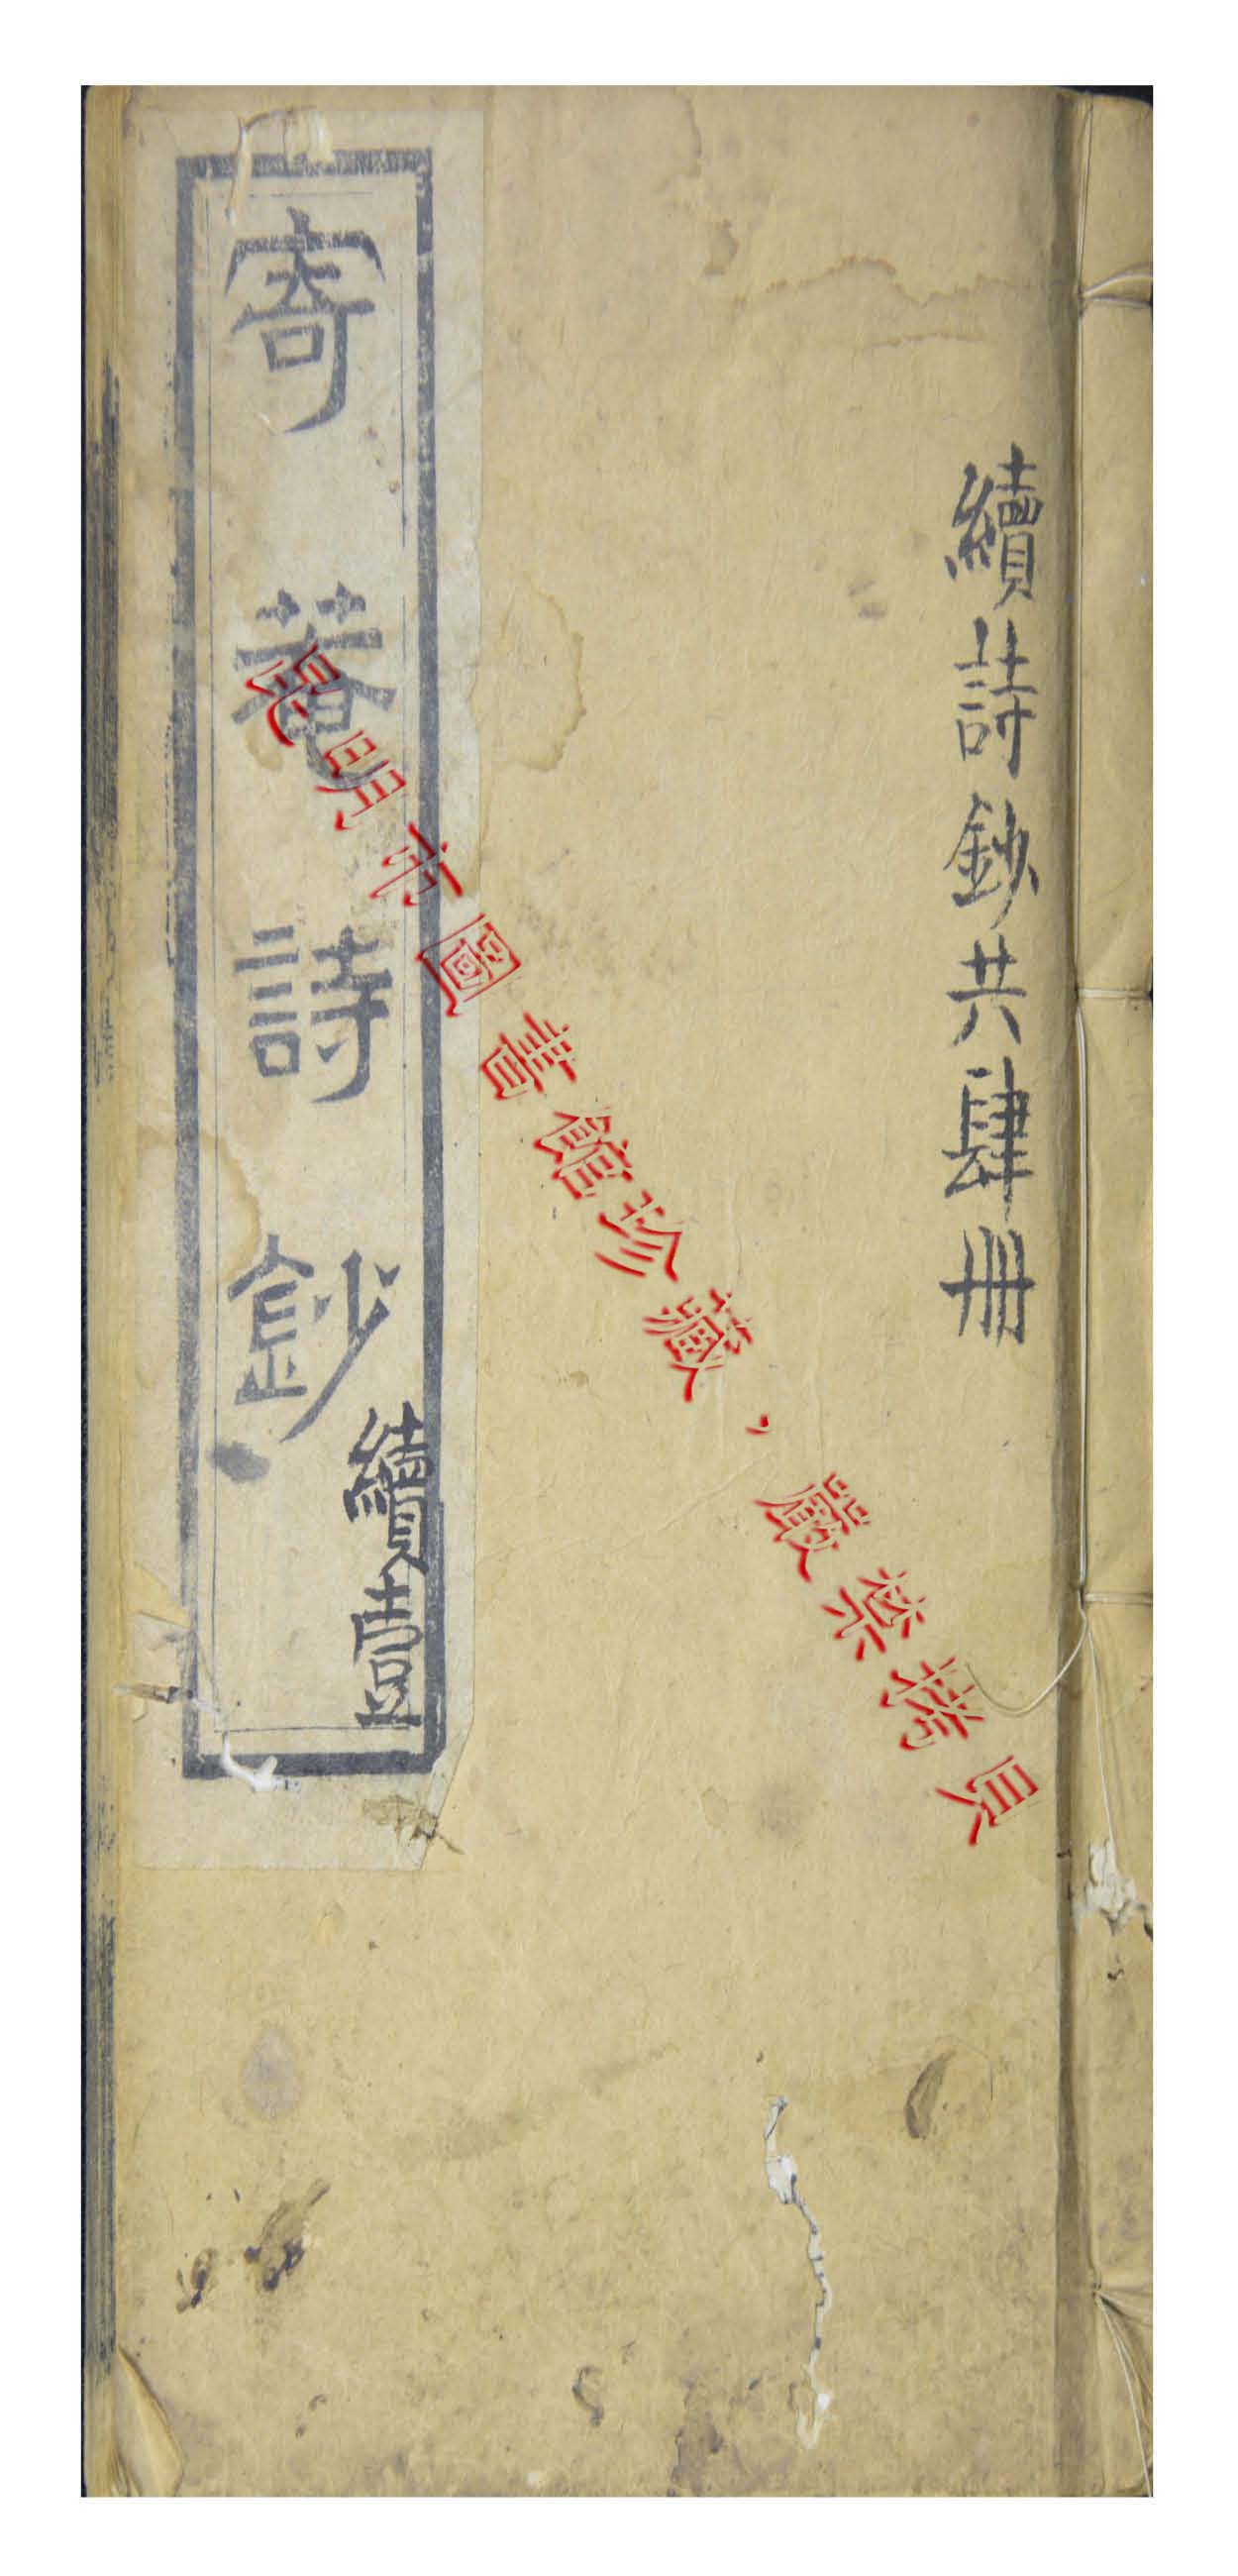 續詩鈔共肆冊
寄菴詩鈔
續壹
昆明市圖書館珍藏，嚴禁拷貝